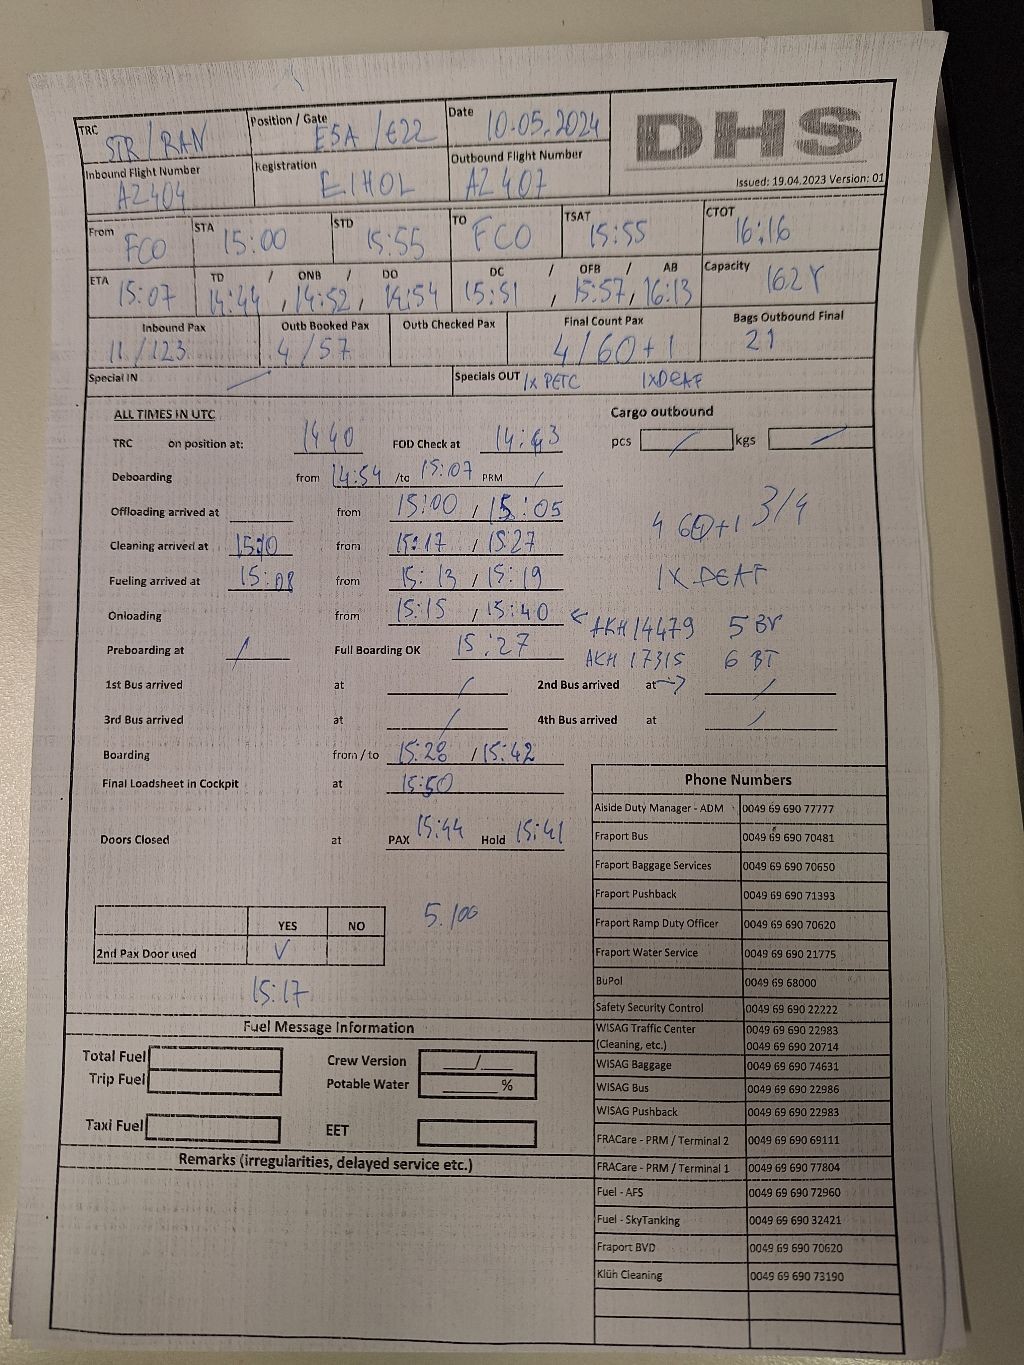 TRC STR/RAN Position / Gate E5A /E22 Date 10.05.2024 DHS
Inbound Flight Number AZ404 Registration EIHOL Outbound Flight Number AZ407
Issued: 19.04.2023 Version: 01
From FCO STA 15:00 STD 15:55 TO FCO TSAT 15:55 CTOT 16:16
ETA TD / ONB / DO DC / OFB / AB Capacity
15:07 14:44, 14:52, 14:54 15:51, 15:57, 16:13 162Y
Inbound Pax Outb Booked Pax Outb Checked Pax Final Count Pax Bags Outbound Final
11/123 4/57 4/60+1 21
Special IN Specials OUT 1x PETC 1xDEAF
ALL TIMES IN UTC Cargo outbound
TRC on position at: 1440 FOD Check at 14:43 pcs / kgs /
Deboarding from 14:54 /to 15:07 PRM /
Offloading arrived at from 15:00 / 15:05
4 60+1 3/4
Cleaning arrived at 15:10 from 15:17 / 15:27
Fueling arrived at 15:08 from 15:13 / 15:19
1X DEAF
Onloading from 15:15 / 15:40
AKH 14479 5 BY
Preboarding at / Full Boarding OK 15:27
AKH 17315 6 BT
1st Bus arrived at / 2nd Bus arrived at /
3rd Bus arrived at / 4th Bus arrived at /
Boarding from / to 15:28 / 15:42
Final Loadsheet in Cockpit at 15:50
Doors Closed at PAX 15:44 Hold 15:41
5.100
YES NO
2nd Pax Door used ✓
15:17
Fuel Message Information
Total Fuel Crew Version /
Trip Fuel Potable Water %
Taxi Fuel EET
Remarks (irregularities, delayed service etc.)
Phone Numbers
Aiside Duty Manager - ADM 0049 69 690 77777
Fraport Bus 0049 69 690 70481
Fraport Baggage Services 0049 69 690 70650
Fraport Pushback 0049 69 690 71393
Fraport Ramp Duty Officer 0049 69 690 70620
Fraport Water Service 0049 69 690 21775
BuPol 0049 69 68000
Safety Security Control 0049 69 690 22222
WISAG Traffic Center 0049 69 690 22983
(Cleaning, etc.) 0049 69 690 20714
WISAG Baggage 0049 69 690 74631
WISAG Bus 0049 69 690 22986
WISAG Pushback 0049 69 690 22983
FRACare - PRM / Terminal 2 0049 69 690 69111
FRACare - PRM / Terminal 1 0049 69 690 77804
Fuel - AFS 0049 69 690 72960
Fuel - SkyTanking 0049 69 690 32421
Fraport BVD 0049 69 690 70620
Klüh Cleaning 0049 69 690 73190